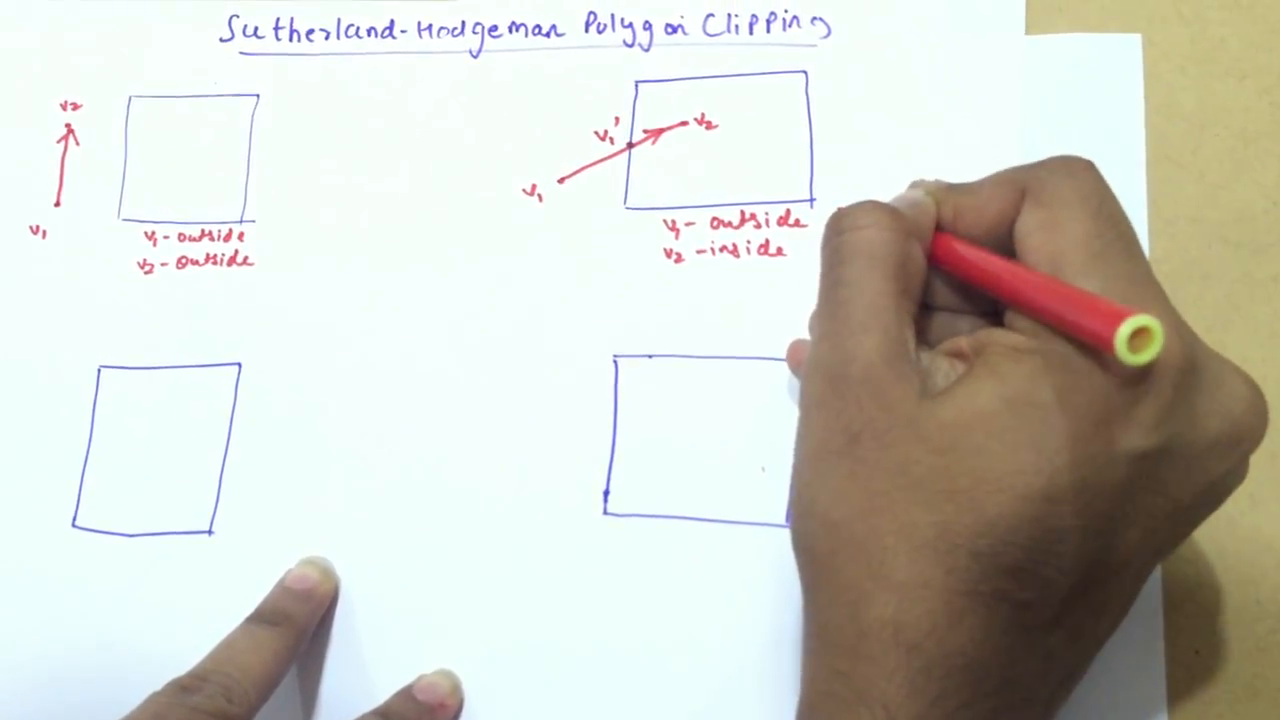 Sutherland-Hodgeman Polygon Clipping
v2
v1
v1 - outside
v2 - outside
v1'
v2
v1
v1 - outside
v2 - inside